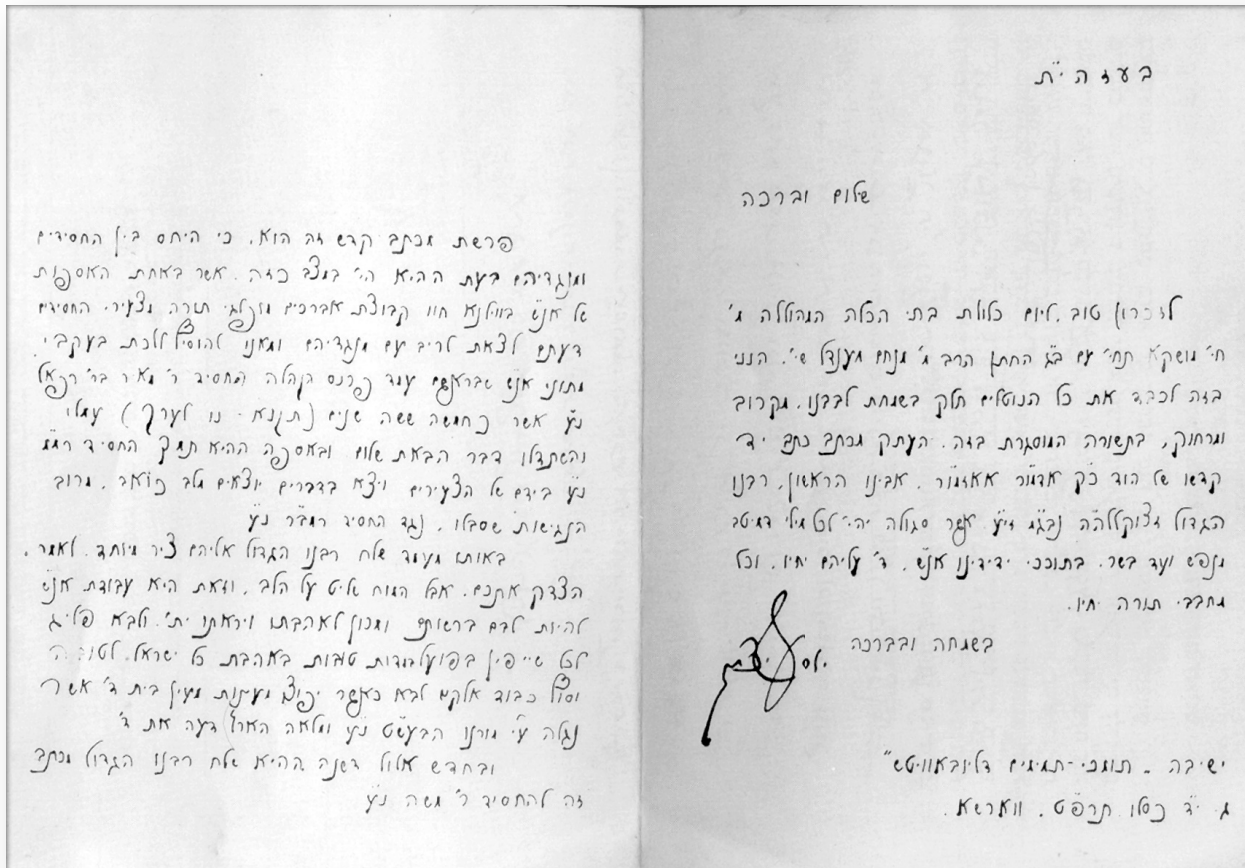 בעזה י"ת
שלום וברכה
לזכרון טוב, ליום כלולת בתי הכלה המהוללה מ'
חי' מושקא תחי' עם ב"ג החתן הרב מ' מנחם מענדל שי'. הנני
בזה לכבד את כל הנוטלים חלק בשמחת לבבנו, מקרוב
ומרחוק, בתשורה המוסגרת בזה. העתק מכתב כתב יד
קדשו של הוד כ"ק אדמו"ר אאזמו"ר, אבינו הראשון, רבנו
הגדול זצוקללה"ה נבג"מ זי"ע אשר סגולה יהי' לכל מילי דמיטב
מנפש ועד בשר, בתוככי ידידינו אנ"ש, ד' עליהם יחיו, וכל
מחבבי תורה יחיו.
בשמחה ובברכה
ישיבה - תומכי-תמימים דליובאוויטש"
ג. י"ד כסלו תרפ"ט. ווארשא.
פרשת מכתב קדש זה הוא, כי היחס בין החסידים
ומנגדיהם בעת ההיא הי' במצב כזה, אשר באחת האספות
של אנ"ש בווילנא חוו קבוצת אברכים מופלגי תורה מצעירי החסידים
דעתם לצאת לריב עם מנגדיהם ומאנו להוסיף ללכת בעקבי
מתוני אנ"ש שבראשם עמד פרנס הקהלה החסיד ר' מאיר בר' רפאל
נ"ע אשר כחמשה ששה שנים (תקנ"א - נו לערך) עמלו
והשתדלו דבר הבאת שלום ובאספה ההיא תמך החסיד רמ"מ
נ"ע בידם של הצעירים ויצא בדברים יוצאים מלב כואב, מרוב
הנגישות שסבלו, נגד החסיד רמב"ר נ"ע
באותו מעמד שלח רבנו הגדול אליהם ציר מיוחד, לאמר,
הצדק אתכם. אבל המוח שליט על הלב, וזאת היא עבודת אנ"ש
להיות לבם ברשותם ומכון לאהבתו ויראתו ית', ולבא פליג
לכל שייפין בפועל עבודות טובות באהבת כל ישראל. לטובה
וסוף כבוד אלקים לבא כאשר יפוצו מעינות מעין בית ד' אשר
נגלה ע"י מורנו הבעש"ט נ"ע ומלאה הארץ דעה את ד'
ובחדש אלול דשנה ההיא שלח רבנו הגדול מכתב
זה להחסיד ר' משה נ"ע